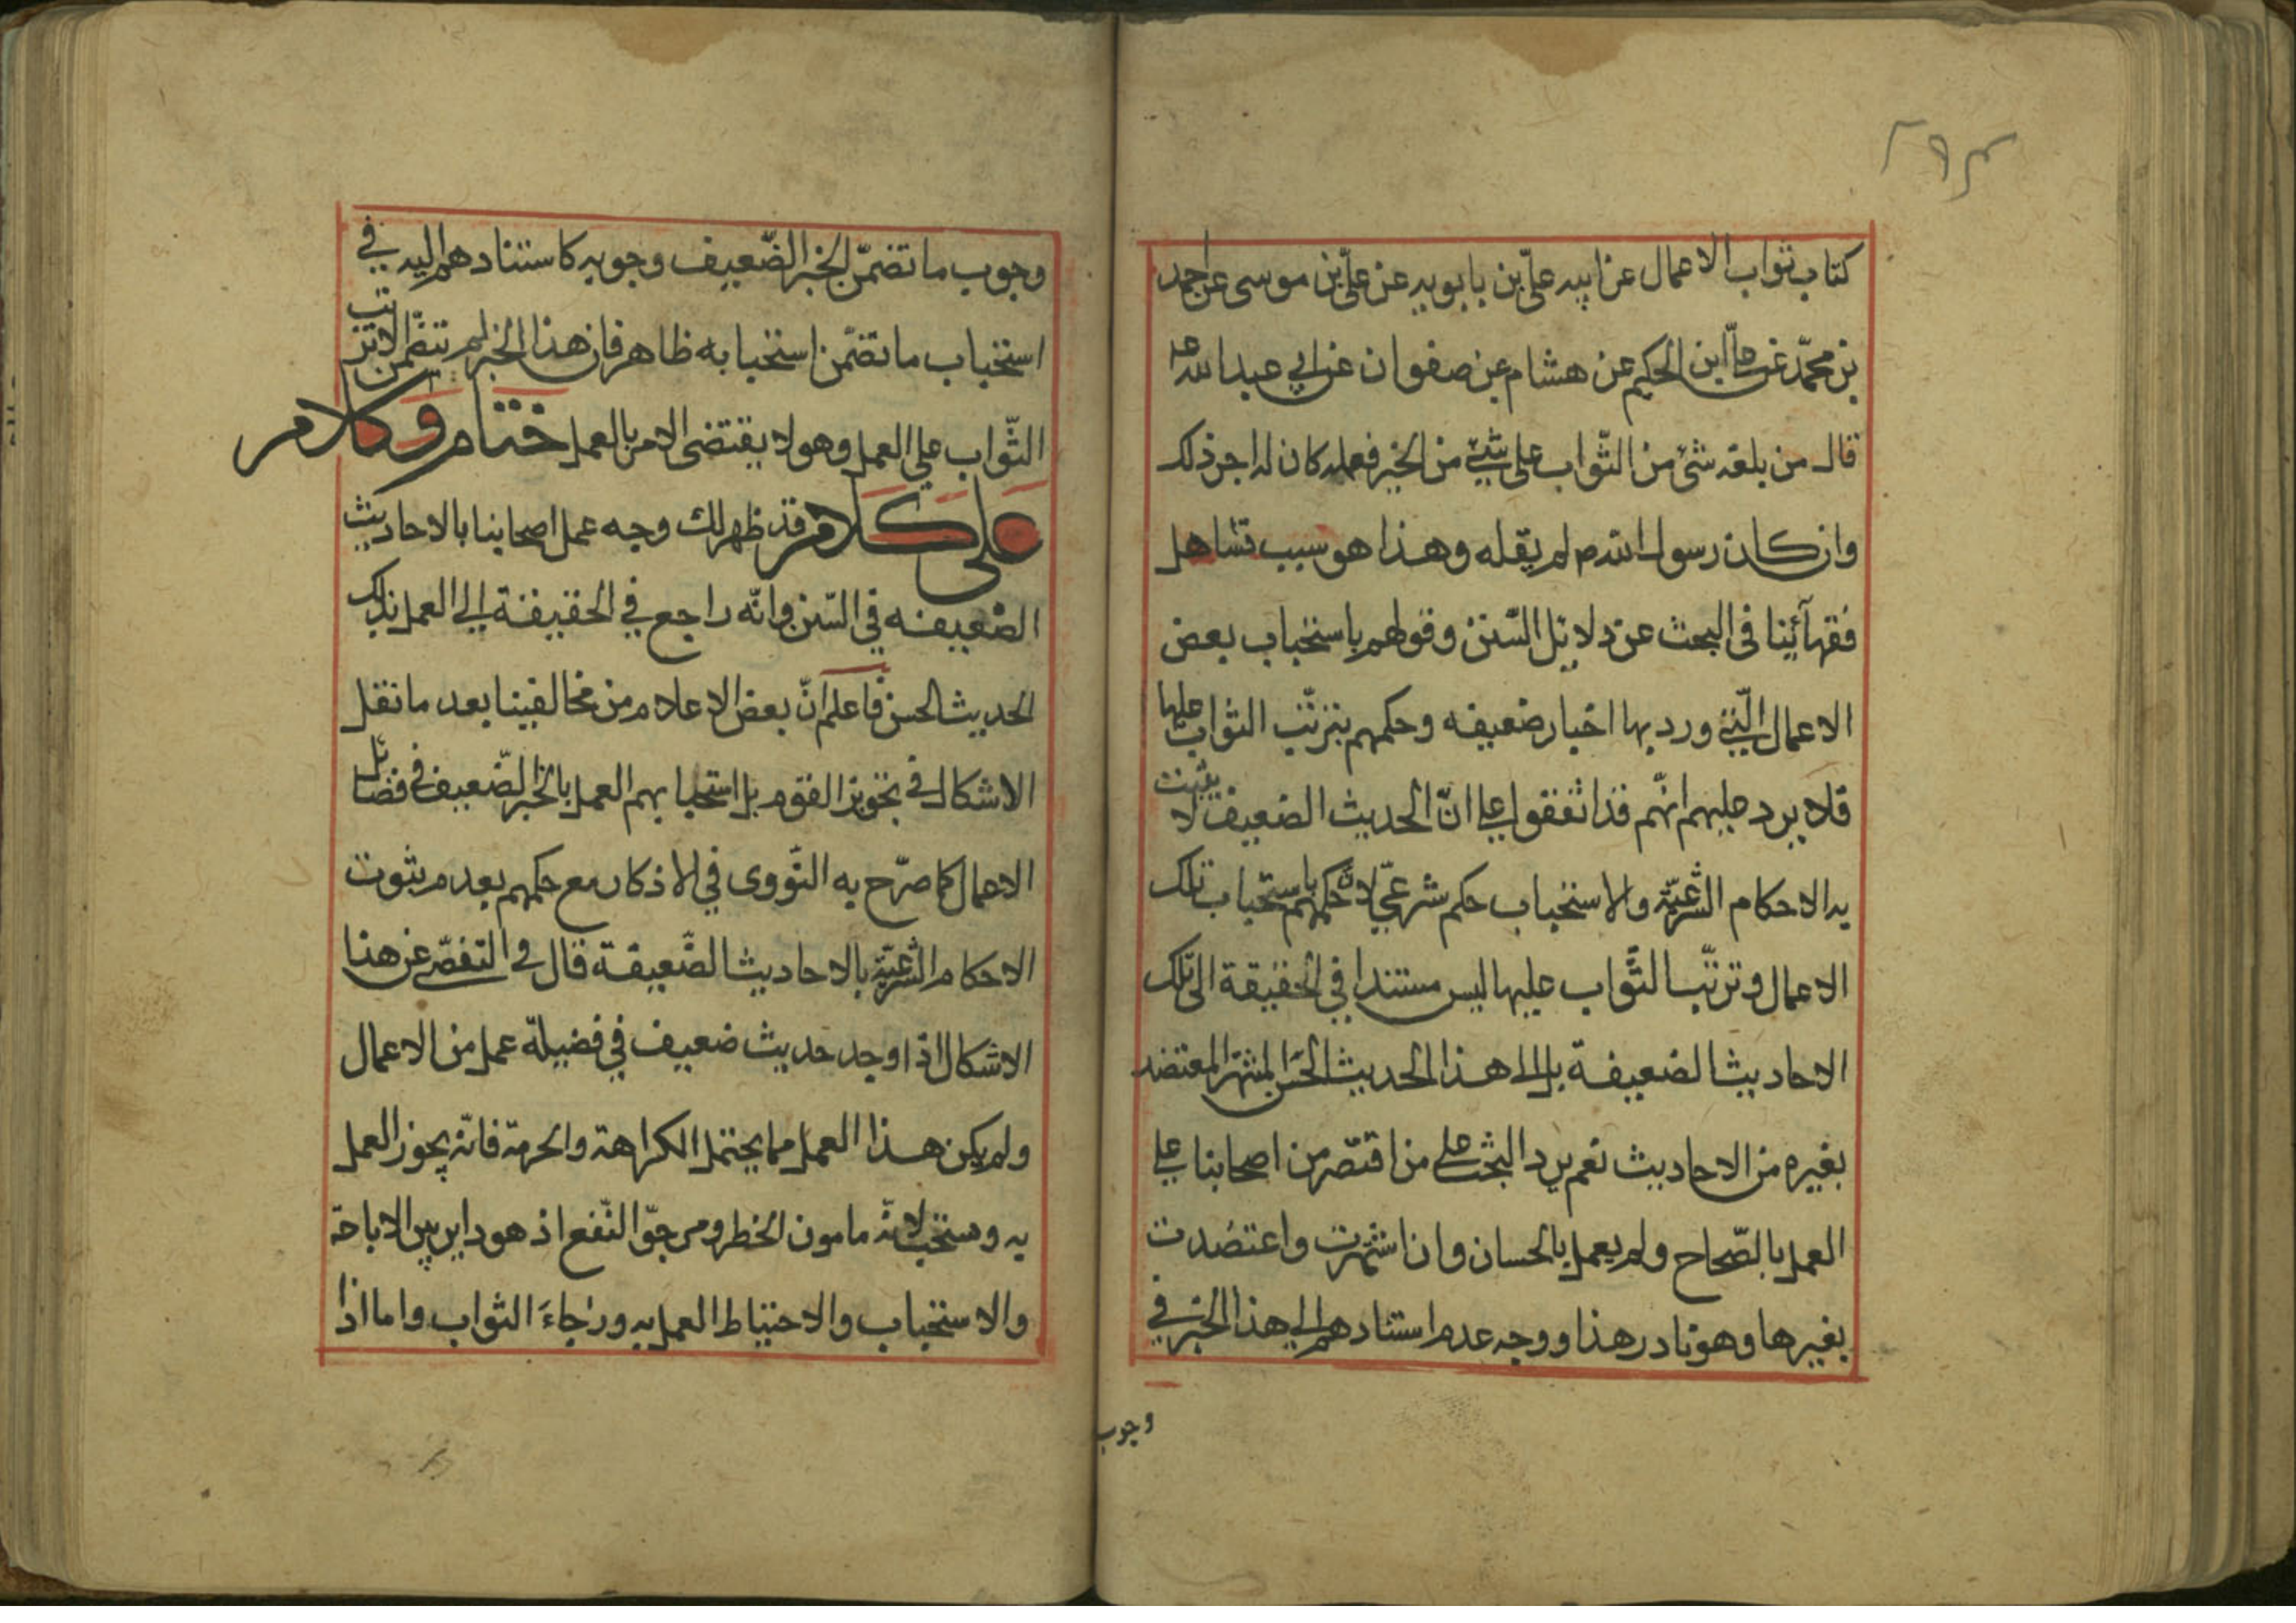 ٢٩٣
كتاب ثواب الاعمال عن ابيه علىّ بن بابويه عن علىّ بن موسى عن احمد
بن محمّد عن على ابن الحكم عن هشام عن صفوان عن ابي عبد الله ع
قال من بلغه شئ من الثّواب على شئ من الخير فعمله كان له اجر ذلك
وان كان رسول الله ص لم يقله وهذا هو سبب تساهل
فقهآئنا فى البحث عن دلائل السّنن وقولهم باستحباب بعض
الاعمال الّتى ورد بها اخبار ضعيفه وحكمهم بترتّب الثواب عليها
فلا يرد عليهم انّهم قد اتفقوا على انّ الحديث الضعيف لا يثبت
به الاحكام الشّرعيّة والاستحباب حكم شرعىّ لانّ حكمهم باستحباب تلك
الاعمال وترتّب الثّواب عليها ليس مستندا في الحقيقة الى تلك
الاحاديث الضعيفة بل الى هذا الحديث الحسن المشتهر المعتضد
بغيره من الاحاديث نعم يرد البحث على من اقتصر من اصحابنا على
العمل بالصّحاح ولم يعمل بالحسان وان اشتهرت واعتضدت
بغيرها وهو نادر هذا ووجه عدم استنادهم الى هذا الخبر في
وجوب
وجوب ما تضمّن الخبر الضّعيف وجوبه كاستنادهم اليه في
استحباب ما تضمّن استحبابه ظاهر فان هذا الخبر لم يتضمّن الا ترتب
الثّواب على العمل وهو لا يقتضى الامر بالعمل ختام وكلام
على كلام قد ظهر لك وجه عمل اصحابنا بالاحاديث
الضّعيفه في السّنن وانّه راجع في الحقيقة الى العمل بذلك
الحديث الحسن فاعلم انّ بعض الاعلام من مخالفينا بعد ما نقل
الاشكال في تجويز القوم بل استحبابهم العمل بالخبر الضّعيف في فضائل
الاعمال كما صرّح به النّووى في الاذكار مع حكمهم بعدم ثبوت
الاحكام الشّرعيّة بالاحاديث الضّعيفة قال في التفصّى عن هذا
الاشكال اذا وجد حديث ضعيف في فضيلة عمل من الاعمال
ولم يكن هذا العمل مما يحتمل الكراهة والحرمة فانّه يجوز العمل
به ومستحب لانّه مامون الخطر ومرجوّ النّفع اذ هو داير بين الاباحة
والاستحباب والاحتياط العمل به ورجاءَ الثواب واما اذا